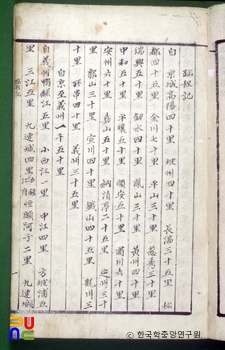 路程記
自 京城高陽四十里 坡州四十里 長湍三十五里 松
都四十五里 金川七十里 平山三十里 葱秀三十里
瑞興五十里 劒水四十里 鳳山三十里 黃州四十里
中和五十里 平壤五十里 順安五十里 肅川六十里
安州六十里 嘉山五十里 納清亭二十五里 定州三十
五里 郭山三十里 宣川四十里 鐵山四十五里 龍川三
十里 四十里 義州三十五里
自京至義州一千五十里
自義州鴨綠江五里 小西江一里 中江四里 方陂浦五
里 三江五里 九連城四里 河子二里 九連城
© 한국학중앙연구원